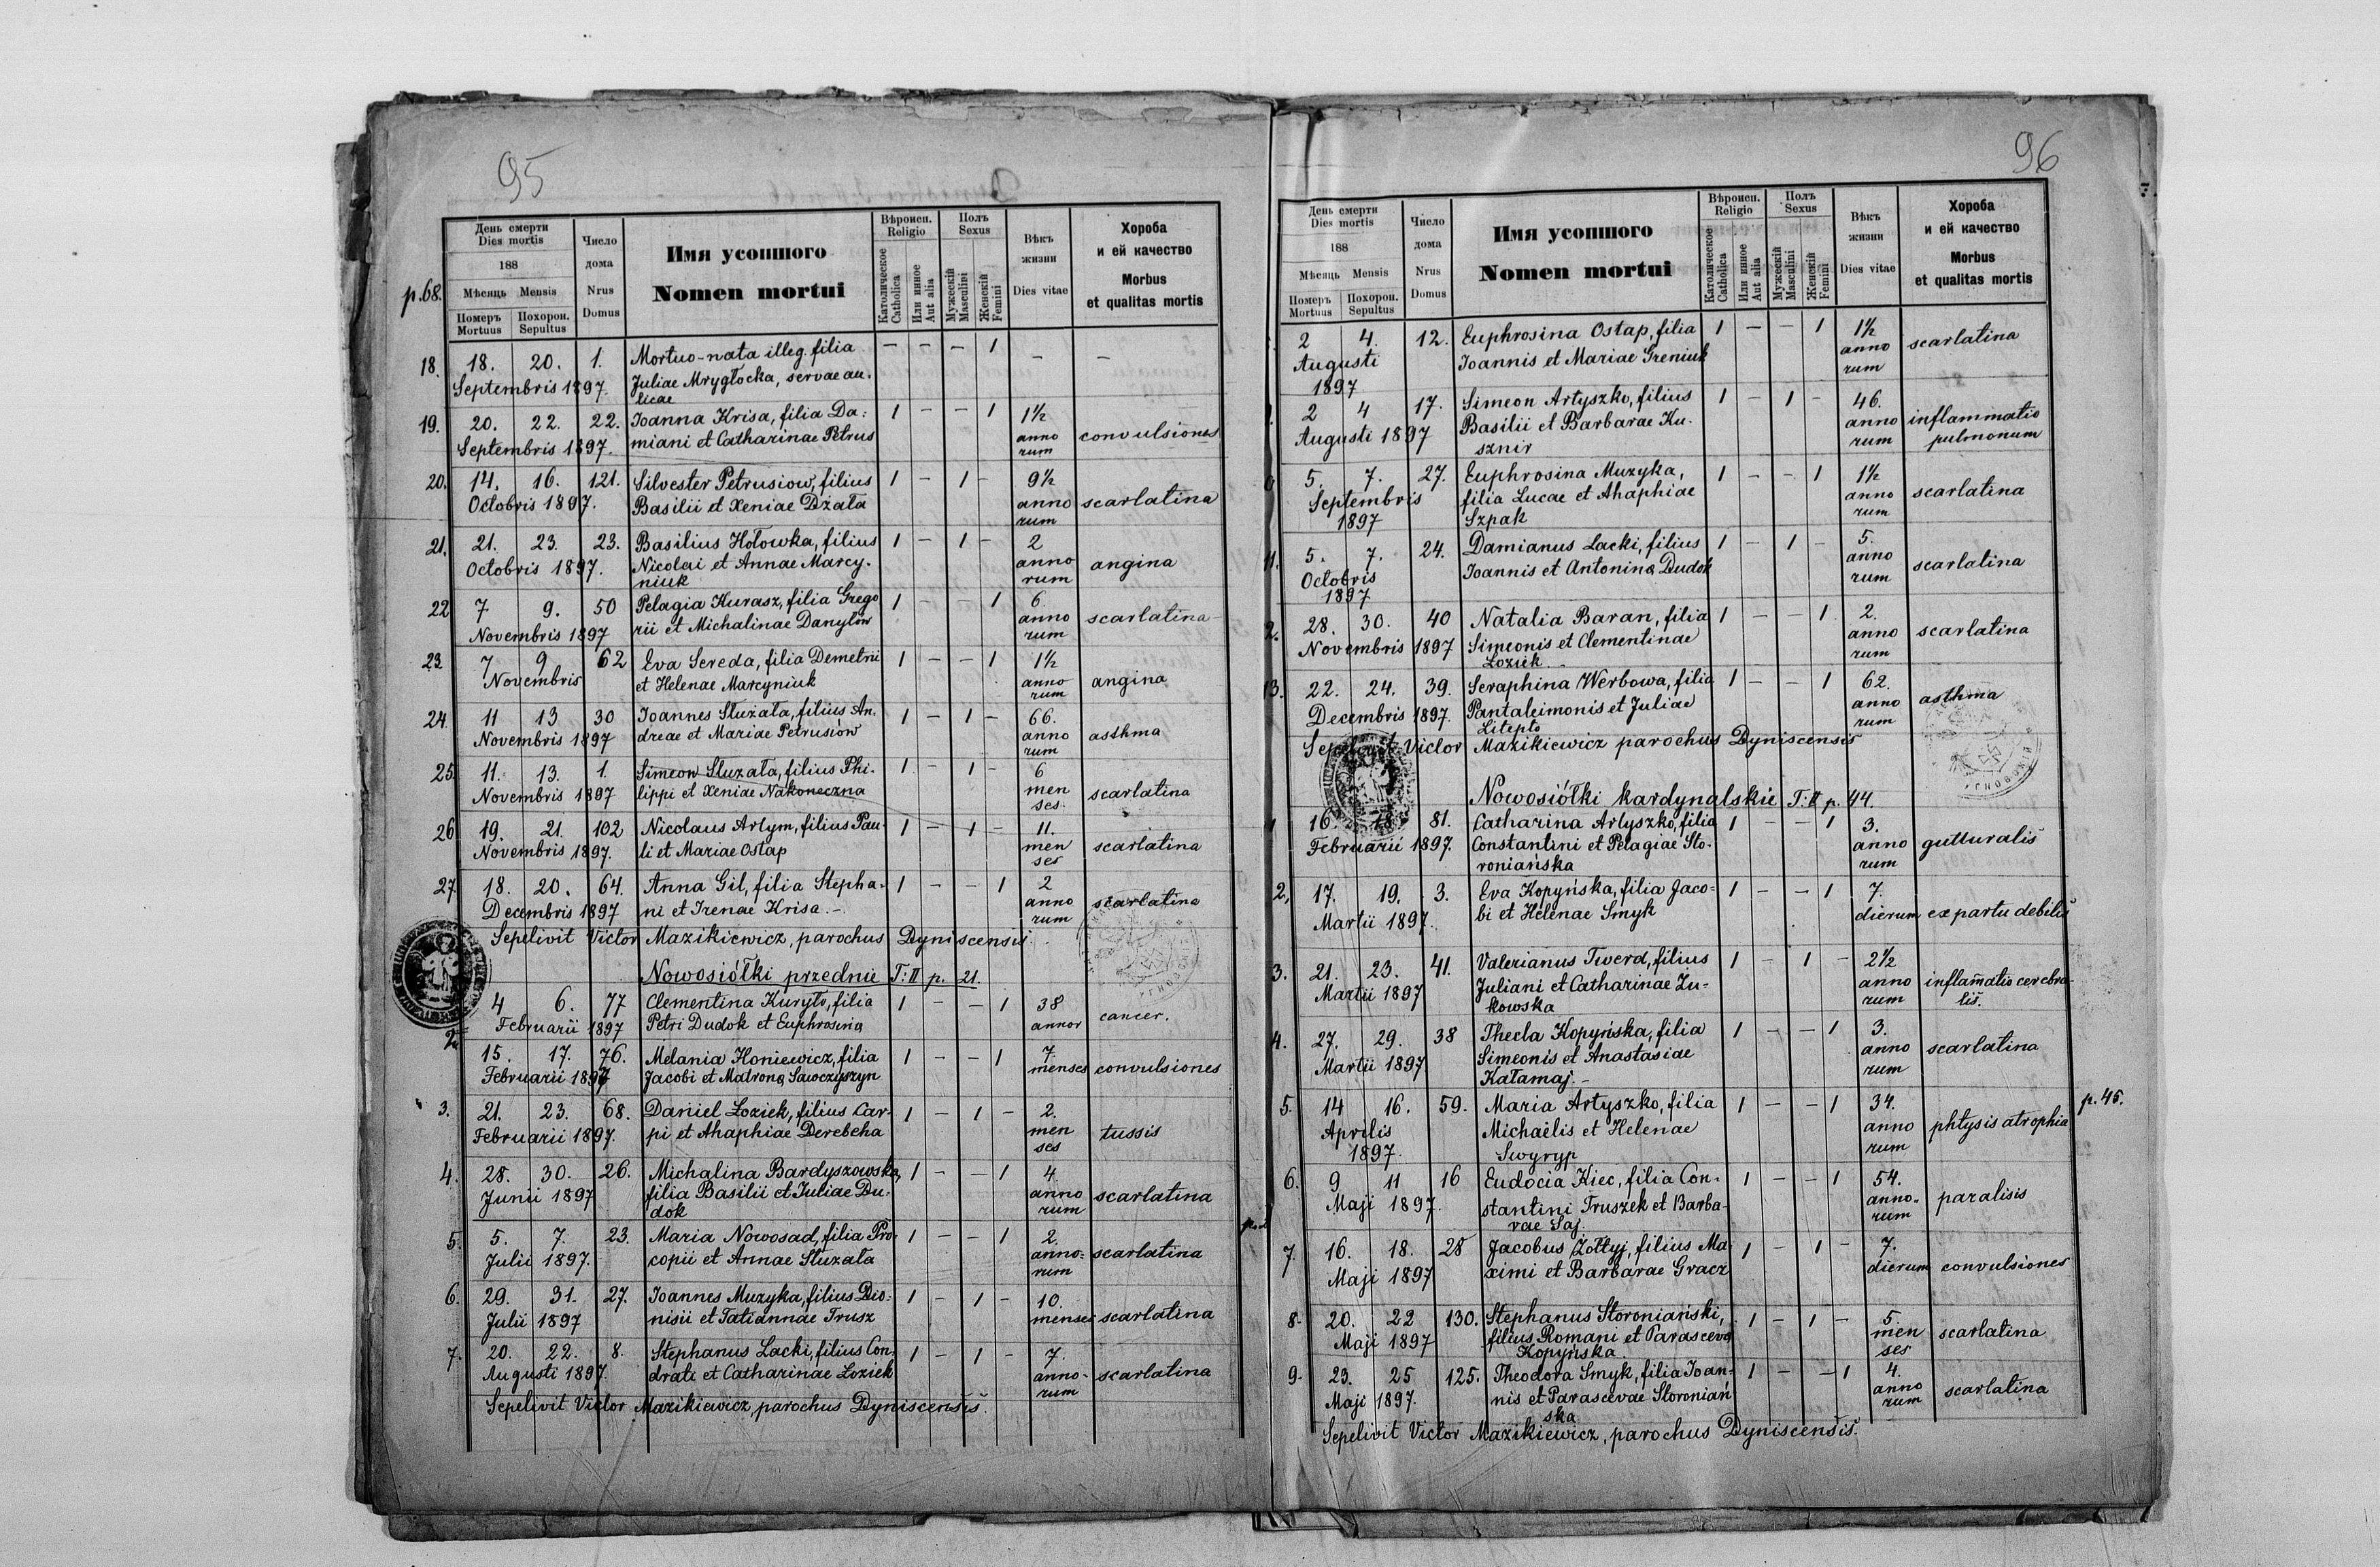 95
p. 68.
День смерти
Dies mortis
188
Мѣсяць Mensis
Померъ
Mortuus
Похорон.
Sepultus
Число
дома
Nrus
Domus
Имя усопшого
Nomen mortui
Вѣроисп.
Religio
Католическое
Catholica
Или инное
Aut alia
Полъ
Sexus
Мужескій
Masculini
Женскій
Femini
Вѣкъ
жизни
Dies vitae
Хороба
и ей качество
Morbus
et qualitas mortis
18. 18. 20. 1. Mortuo-nata illeg. filia – – – 1 – –
Septembris 1897. Juliae Mrygłocka, servae au-
licae
19. 20. 22. 22. Joanna Krisa, filia Da- 1 – – 1 1½
Septembris 1897. miani et Catharinae Petrus anno convulsiones
rum
20. 14. 16. 121. Silvester Petrusiow, filius 1 – 1 – 9½
Octobris 1897. Basilii et Xeniae Dżała anno scarlatina
rum
21. 21. 23. 23. Basilius Hołowka, filius 1 – 1 – 2
Octobris 1897. Nicolai et Annae Marcy- anno angina
niuk rum
22 7 9. 50 Pelagia Kurasz, filia Grego 1 – – 1 6.
Novembris 1897 rii et Michalinae Danyłów anno scarlatina
rum
23. 7 9 62 Eva Sereda, filia Demetrii 1 – – 1 1½
Novembris et Helenae Marcyniuk anno angina
rum
24. 11 13 30 Joannes Słuzała, filius An- 1 – 1 – 66.
Novembris 1897 dreae et Mariae Petrusiów anno asthma
rum
25. 11. 13. 1. Simeon Słuzała, filius Phi- 1 – 1 – 6
Novembris 1897 lippi et Xeniae Nakoneczna men scarlatina
ses
26 19. 21. 102 Nicolaus Artym, filius Pau- 1 – 1 – 11.
Novembris 1897. li et Mariae Ostap men scarlatina
ses
27 18. 20. 64. Anna Gil, filia Stepha- 1 – – 1 2
Decembris 1897 ni et Irenae Krisa. – anno scarlatina
rum
Sepelivit Victor Mazikiewicz, parochus Dyniscensis.
Nowosiółki przednie T: II p. 21.
4 6. 77 Clementina Kuryło, filia 1 – – 1 38
Februarii 1897 Petri Dudok et Euphrosina annor cancer.
2. 15. 17. 76. Melania Koniewicz, filia 1 – – 1 7.
Februarii 1897 Jacobi et Matrona Sawczyszyn menses convulsiones
3. 21. 23. 68. Daniel Loziek, filius Car- 1 – 1 – 2.
Februarii 1897. pi et Ahaphiae Derebeha men tussis
ses
4. 28. 30. 26. Michalina Bardyszowska, 1 – – 1 4
Junii 1897 filia Basilii et Juliae Du- anno scarlatina
dok rum
5. 5. 7. 23. Maria Nowosad, filia Pro- 1 – – 1 2.
Julii 1897. copii et Annae Słuzała anno- scarlatina
rum
6. 29. 31. 27. Joannes Muzyka, filius Dio- 1 – 1 – 10.
Julii 1897 nisii et Tatiannae Trusz menses scarlatina
7. 20. 22. 8. Stephanus Lacki, filius Con- 1 – 1 – 7.
Augusti 1897. drati et Catharinae Loziek anno- scarlatina
rum
Sepelivit Victor Mazikiewicz, parochus Dyniscensis.
96
День смерти
Dies mortis
188
Мѣсяць Mensis
Померъ
Mortuus
Похорон.
Sepultus
Число
дома
Nrus
Domus
Имя усопшого
Nomen mortui
Вѣроисп.
Religio
Католическое
Catholica
Или инное
Aut alia
Полъ
Sexus
Мужескій
Masculini
Женскій
Femini
Вѣкъ
жизни
Dies vitae
Хороба
и ей качество
Morbus
et qualitas mortis
2 4. 12. Euphrosina Ostap, filia 1 – – 1 1½
Augusti Joannis et Mariae Greniuk anno scarlatina
1897 rum
2 4 17. Simeon Artyszko, filius 1 – 1 – 46.
Augusti 1897 Basilii et Barbarae Ku- anno inflammatio
sznir rum pulmonum
5. 7. 27. Euphrosina Muzyka, 1 – – 1 1½
Septembris filia Lucae et Ahaphiae anno scarlatina
1897 Szpak rum
11. 5. 7. 24. Damianus Lacki, filius 1 – 1 – 5.
Octobris Joannis et Antonina Dudok anno scarlatina
1897 rum
2. 28. 30. 40 Natalia Baran, filia 1 – – 1 2.
Novembris 1897 Simeonis et Clementinae anno scarlatina
Loziek rum
13. 22. 24. 39. Seraphina Werbowa, filia 1 – – 1 62.
Decembris 1897. Pantaleimonis et Juliae anno asthma
Litepło rum
Sepelivit Victor Mazikiewicz parochus Dyniscensis
Nowosiółki kardynalskie T: II p. 44.
1 16. 18. 81. Catharina Artyszko, filia 1 – – 1 3.
Februarii 1897. Constantini et Pelagiae Sto- anno gutturalis
roniańska rum
2, 17. 19. 3. Eva Kopyńska, filia Jaco- 1 – – 1 7.
Martii 1897. bi et Helenae Smyk dierum ex partu debilis
3. 21. 23. 41. Valerianus Twerd, filius 1 – 1 – 2½
Martii 1897 Juliani et Catharinae Żu- anno inflam̄atio cerebra-
kowska rum lis.
4. 27. 29. 38 Thecla Kopyńska, filia 1 – – 1 3.
Martii 1897 Simeonis et Anastasiae anno scarlatina
Kałamaj. – rum
5. 14 16. 59. Maria Artyszko, filia 1 – – 1 34. p. 45.
Aprilis Michaëlis et Helenae anno phtysis atrophia
1897. Swyryp rum
6. 9 11 16 Eudocia Kiec, filia Con- 1 – – 1 54.
Maji 1897. stantini Truszek et Barba- anno- paralisis
rae Saj. rum
7. 16. 18. 28 Jacobus Żołtyj, filius Ma- 1 – 1 – 7.
Maji 1897 ximi et Barbarae Gracz dierum convulsiones
8. 20. 22 130. Stephanus Storoniański, 1 – 1 – 5.
Maji 1897 filius Romani et Parasceva men scarlatina
Kopyńska ses
9. 23. 25 125. Theodora Smyk, filia Joan- 1 – – 1 4.
Maji 1897. nis et Parascevae Storoniań anno scarlatina
ska rum
Sepelivit Victor Mazikiewicz, parochus Dyniscensis.